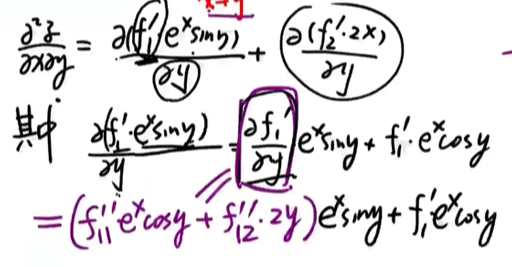 ∂²z/∂x∂y = ∂(f₁′e^x siny)/∂y + ∂(f₂′·2x)/∂y
其中 ∂(f₁′·e^x siny)/∂y = ∂f₁′/∂y e^x siny + f₁′·e^x cosy
= (f₁₁″e^x cosy + f₁₂″·2y)e^x siny + f₁′e^x cosy